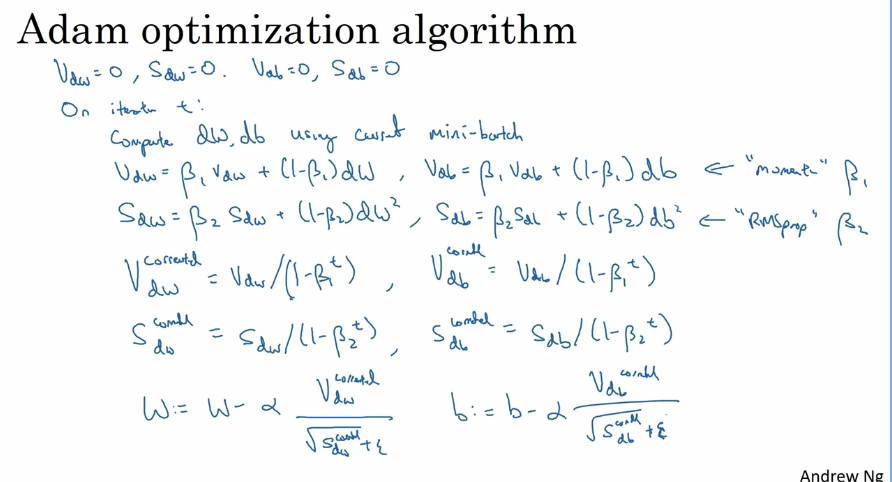 Adam optimization algorithm
V_dw = 0, S_dw = 0. V_db = 0, S_db = 0
On iteratn t:
Compute dW, db using current mini-batch
V_dw = β₁ V_dw + (1-β₁) dW, V_db = β₁ V_db + (1-β₁) db ← "moment" β₁
S_dw = β₂ S_dw + (1-β₂) dW², S_db = β₂ S_db + (1-β₂) db² ← "RMSprop" β₂
V_dw^corrected = V_dw/(1-β₁^t), V_db^corrected = V_db/(1-β₁^t)
S_dw^corrected = S_dw/(1-β₂^t), S_db^corrected = S_db/(1-β₂^t)
W := W - α V_dw^corrected / √S_dw^corrected + ε b := b - α V_db^corrected / √S_db^corrected + ε
Andrew Ng